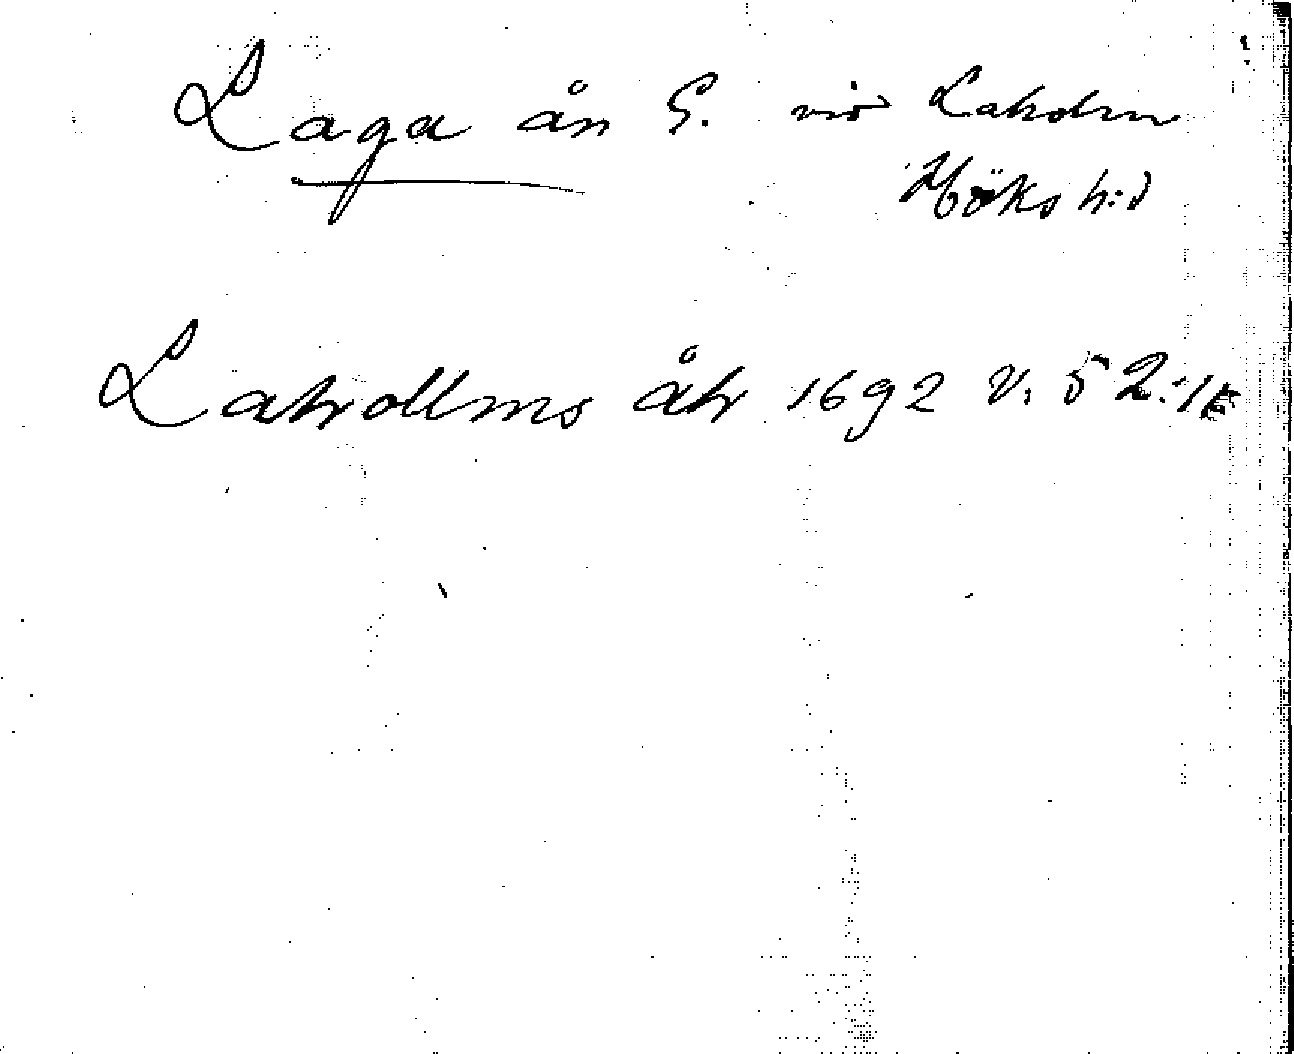 Laga ån S. vid Laholm
Höks h:d
Lahollms åhr 1692 V. 52:1